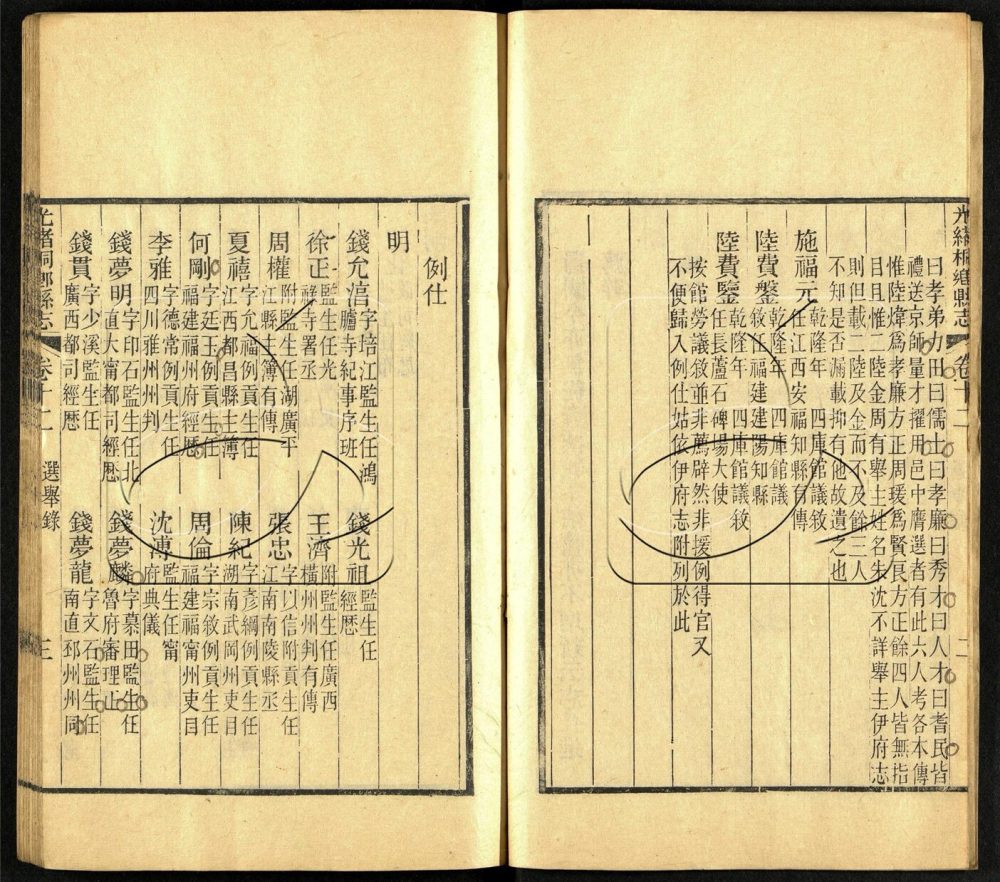 光緒桐鄉縣志 卷十二 二
曰孝弟力田曰儒士曰孝廉曰秀才曰人才曰耆民皆
禮送京師量才擢用邑中膺選者有此六人考各本傳
惟陸煒爲孝廉方正周瑗爲賢良方正餘四人皆無指
目且惟二陸金周有舉主姓名朱沈不詳舉主伊府志
則但載二陸及金而不及餘三人
不知是否漏載抑有他故遺之也
施福元乾隆年 四庫館議敘
任江西安福知縣有傳
陸費鏊乾隆年 四庫館議
敘任福建建陽知縣
陸費鑒乾隆年 四庫館議敘
任長蘆石碑場大使
按館勞議敘並非薦辟然非援例得官又
不便歸入例仕姑依伊府志附列於此
例仕
明
錢允濇字培江監生任鴻
臚寺紀事序班
錢光祖監生任
經歷
徐正監生任光
祿寺署丞
王濟附監生任廣西
橫州州判有傳
周權附監生任湖廣平
江縣主簿有傳
張忠字以信附貢生任
江南南陵縣丞
夏禧字允福例貢生任
江西都昌縣主簿
陳紀字彥綱例貢生任
湖南武岡州吏目
何剛字廷玉例貢生任
福建福州府經歷
周倫字宗敘例貢生任
福建福甯州吏目
李雅字德常例貢生任
四川雅州州判
沈溥監生任甯
府典儀
錢夢明字印石監生任北
直大甯都司經歷
錢夢麟字慕田監生任
魯府審理正
錢貫字少溪監生任
廣西都司經歷
錢夢龍字文石監生任
南直邳州州同
光緒桐鄉縣志 卷十二 選舉錄 三